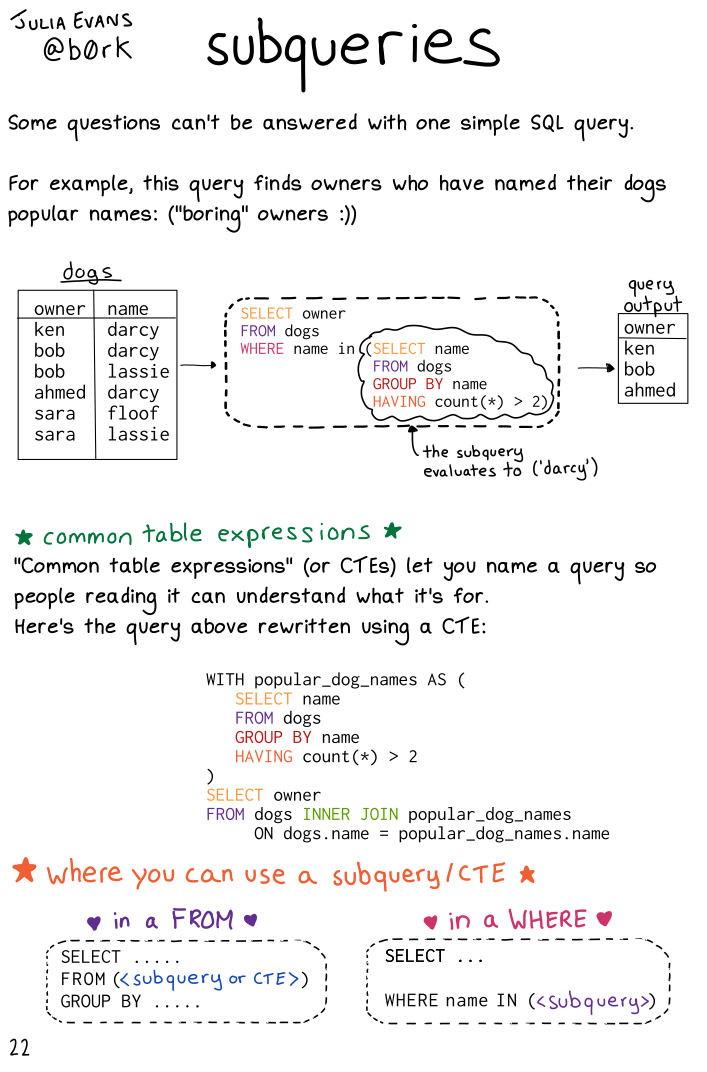 JULIA EVANS
@b0rk
subqueries
Some questions can't be answered with one simple SQL query.
For example, this query finds owners who have named their dogs
popular names: ("boring" owners :))
dogs
owner name
ken darcy
bob darcy
bob lassie
ahmed darcy
sara floof
sara lassie
SELECT owner
FROM dogs
WHERE name in (SELECT name
FROM dogs
GROUP BY name
HAVING count(*) > 2)
the subquery
evaluates to ('darcy')
query
output
owner
ken
bob
ahmed
★ common table expressions ★
"Common table expressions" (or CTEs) let you name a query so
people reading it can understand what it's for.
Here's the query above rewritten using a CTE:
WITH popular_dog_names AS (
SELECT name
FROM dogs
GROUP BY name
HAVING count(*) > 2
)
SELECT owner
FROM dogs INNER JOIN popular_dog_names
ON dogs.name = popular_dog_names.name
★ where you can use a subquery/CTE ★
♥ in a FROM ♥
SELECT .....
FROM (<subquery or CTE>)
GROUP BY .....
♥ in a WHERE ♥
SELECT ...
WHERE name IN (<subquery>)
22